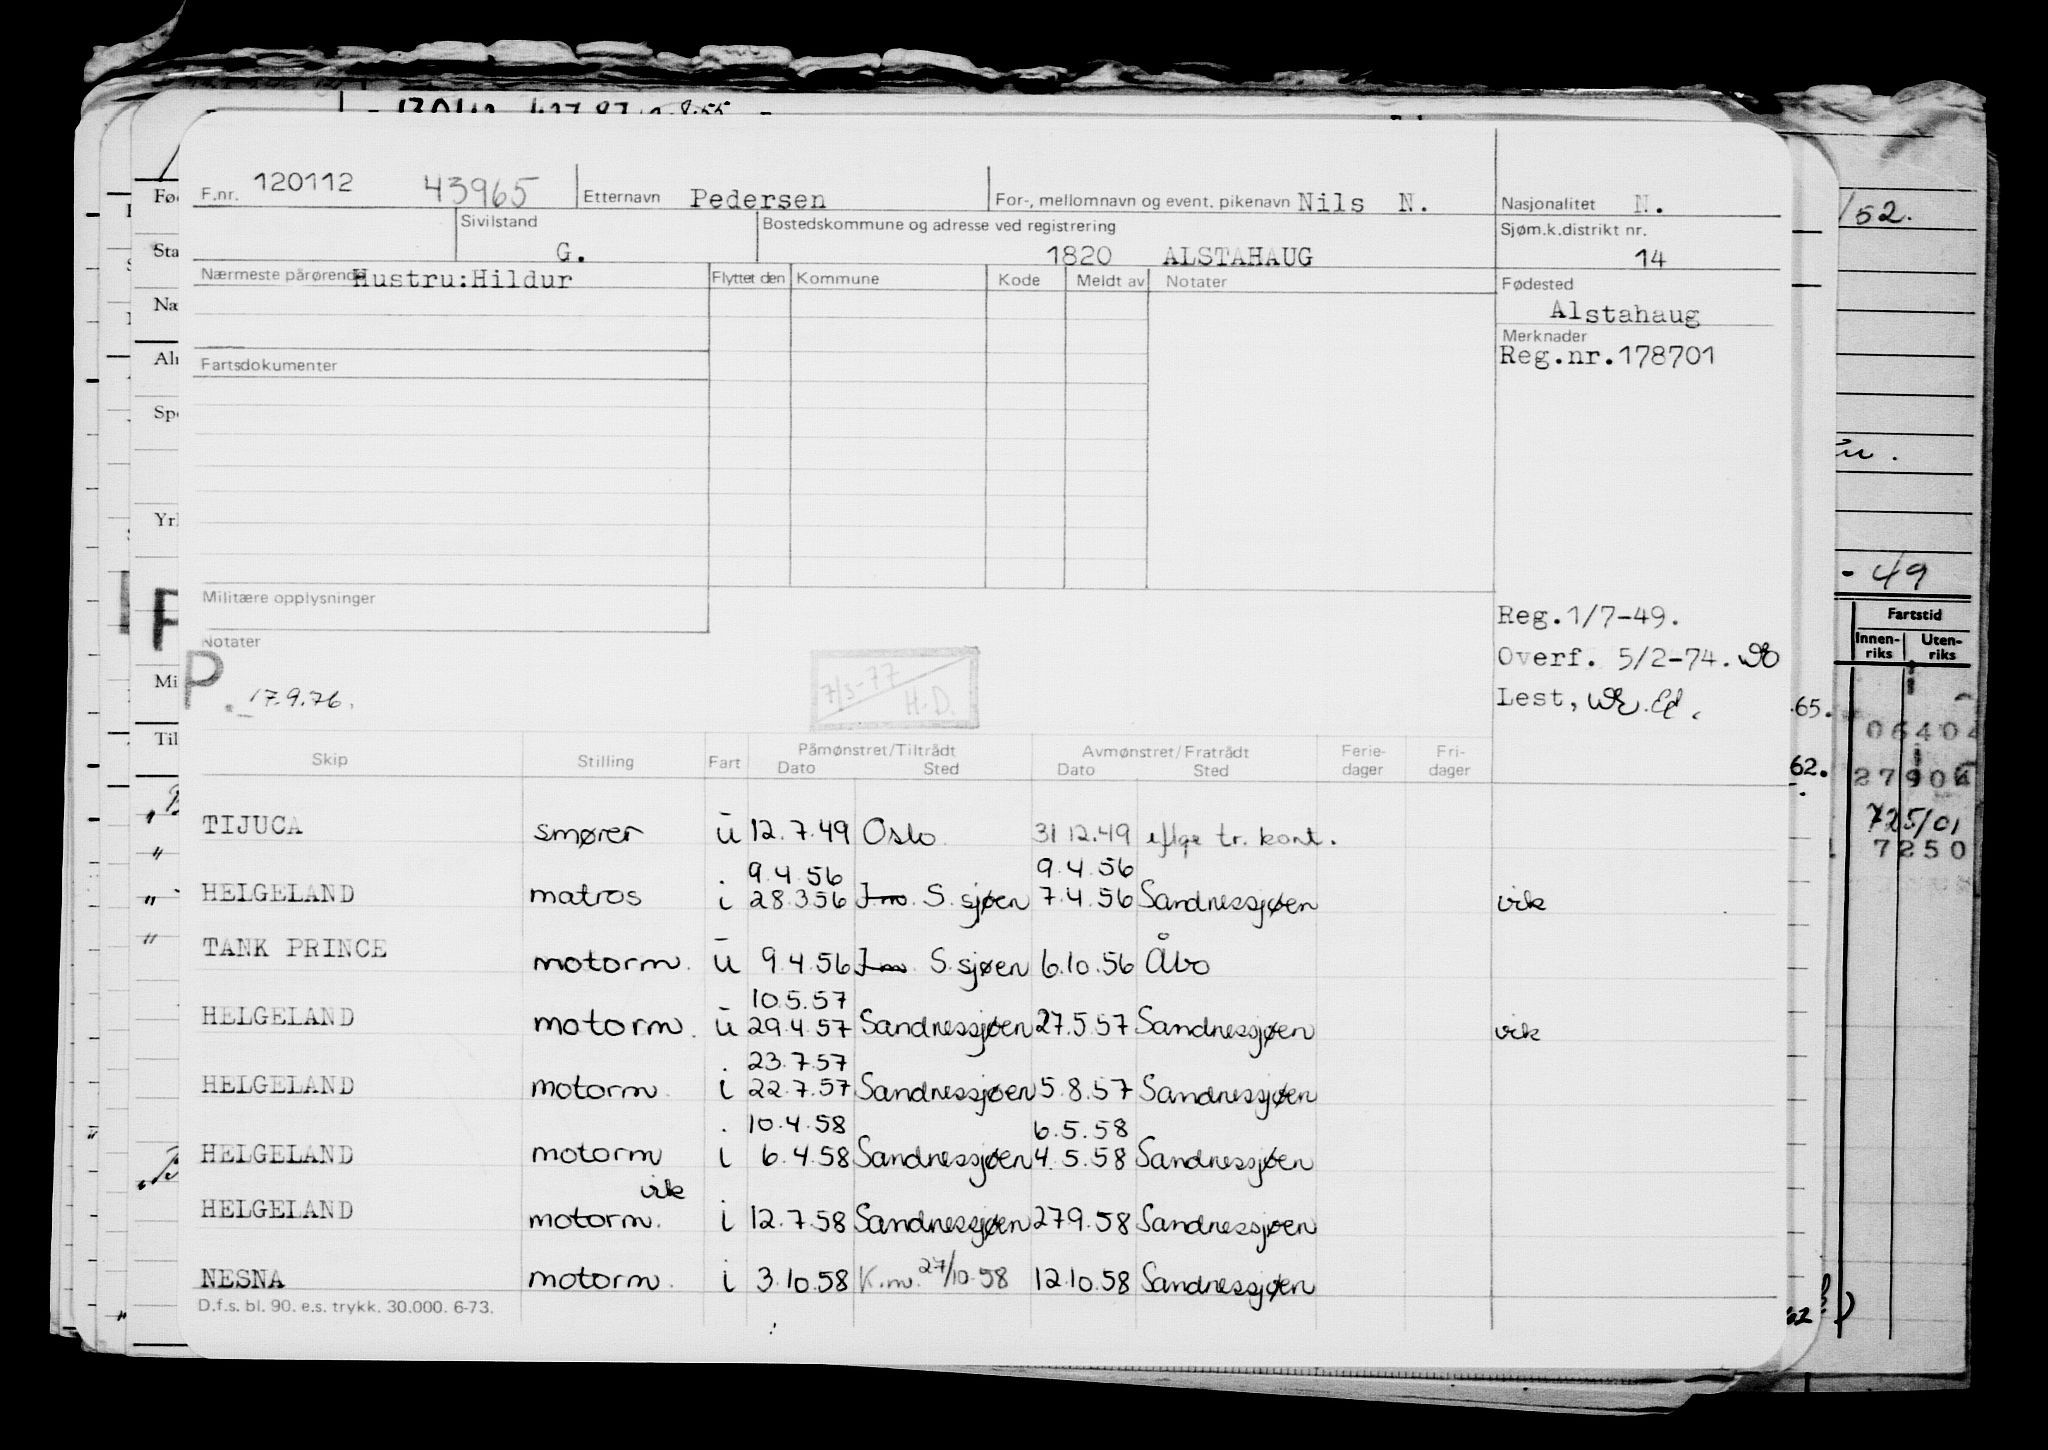 F.nr. 120112 43965 Etternavn Pedersen For-, mellomnavn og event. pikenavn Nils N. Nasjonalitet N.
Sivilstand G. Bostedskommune og adresse ved registrering 1820 ALSTAHAUG Sjøm.k.distrikt nr. 14
Nærmeste pårørende Hustru:Hildur Flyttet den Kommune Kode Meldt av Notater Fødested
Alstahaug
Merknader
Reg.nr.178701
Fartsdokumenter
Militære opplysninger
Reg.1/7-49.
Notater
Overf. 5/2-74.
P. 17.9.76.
7/3-77 H.D.
Lest,
Skip Stilling Fart Påmønstret/Tiltrådt Dato Sted Avmønstret/Fratrådt Dato Sted Ferie-dager Fri-dager
TIJUCA smører u 12.7.49 Oslo 31 12.49 iflge tr. kont.
9.4.56 9.4.56
HELGELAND matros i 28.3.56 S. sjøen 7.4.56 Sandnessjøen vik
TANK PRINCE motorm. u 9.4.56 S.sjøen 6.10.56 Åbo
10.5.57
HELGELAND motorm. u 29.4.57 Sandnessjøen 27.5.57 Sandnessjøen vik
23.7.57
HELGELAND motorm. i 22.7.57 Sandnessjøen 5.8.57 Sandnessjøen
10.4.58 6.5.58
HELGELAND motorm i 6.4.58 Sandnessjøen 4.5.58 Sandnessjøen
vik
HELGELAND motorm. i 12.7.58 Sandnessjøen 279.58 Sandnessjøen
NESNA motorm. i 3.10.58 K.m. 27/10-58 12.10.58 Sandnessjøen
D.f.s. bl. 90. e.s. trykk. 30.000. 6-73.
/52.
- 49
Fartstid
Innen-riks Uten-riks
65.
06404
62.
27904
725/01
7250
62